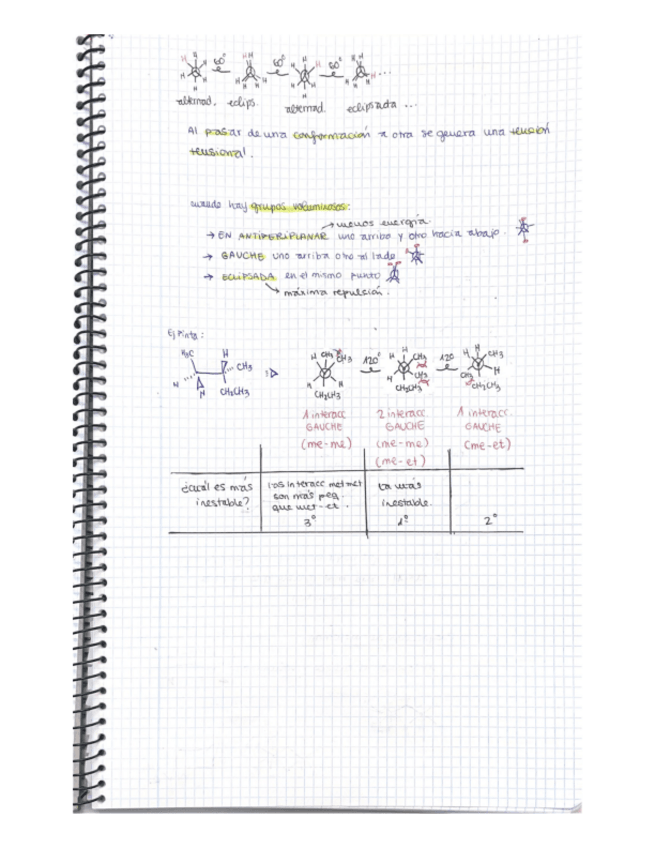 60° 60° 60° ...
alternad. eclips. alternad. eclipsada ...
Al pasar de una conformación a otra se genera una tensión
tensional.
cuando hay grupos voluminosos:
→ menos energía.
→ EN ANTIPERIPLANAR uno arriba y otro hacia abajo.
→ GAUCHE uno arriba otro al lado
→ ECLIPSADA en el mismo punto
→ máxima repulsión.
H3C H CH3 H H CH2CH3
H CH3 CH3 H H CH2CH3
120°
H H CH3 CH3 H CH2CH3
120
H H CH3 H CH3 CH2CH3
1 interacc 2 interacc 1 interacc.
GAUCHE GAUCHE GAUCHE
(me-me) (me-me) (me-et)
(me-et)
¿cuál es más inestable?
las interacc met met
son más peq.
que met-et.
3°
La más
inestable.
1º
2°